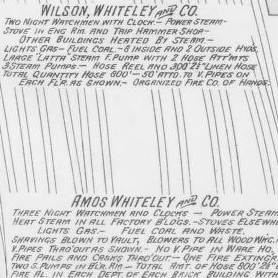 WILSON, WHITELEY AND CO.
TWO NIGHT WATCHMEN WITH CLOCK.- POWER STEAM-
STOVE IN ENG RM. AND TRIP HAMMER SHOP-
OTHER BUILDINGS HEATED BY STEAM.-
LIGHTS GAS- FUEL COAL.- 8 INSIDE AND 2 OUTSIDE HYDS.
LARGE "LATTA" STEAM F. PUMP WITH 2 HOSE ATT'MTS
3 STEAM PUMPS.- HOSE REEL AND 300' 2½" LINEN HOSE
TOTAL QUANTITY HOSE 800'- 50' ATT'D. TO V. PIPES ON
EACH FLR. AS SHOWN.- ORGANIZED FIRE CO. OF HANDS.
AMOS WHITELEY AND CO.
THREE NIGHT WATCHMEN AND CLOCKS - POWER STEAM
HEAT STEAM IN ALL FACTORY BLDGS.- STOVES ELSEWH
LIGHTS GAS.- FUEL COAL AND WASTE.
SHAVINGS BLOWN TO VAULT, BLOWERS TO ALL WOOD WKG.
V. PIPES THRO'OUT AS SHOWN.- NO V. PIPE IN WARE HO.
FIRE PAILS AND CASKS THRO'OUT- ONE FIRE EXTING.
TWO S. PUMPS IN B'L'R. RM.- TOTAL AMT. OF HOSE 600' 2½"
FIRE AL. IN EACH DEPT. OF EACH BRICK BUILDING WITH